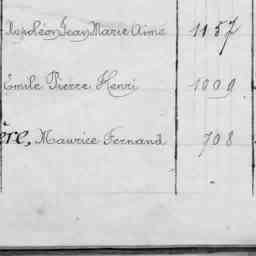 Napoléon Jean Marie Aimé 1157
Emile Pierre Henri 1009
ère, Maurice Fernand 708